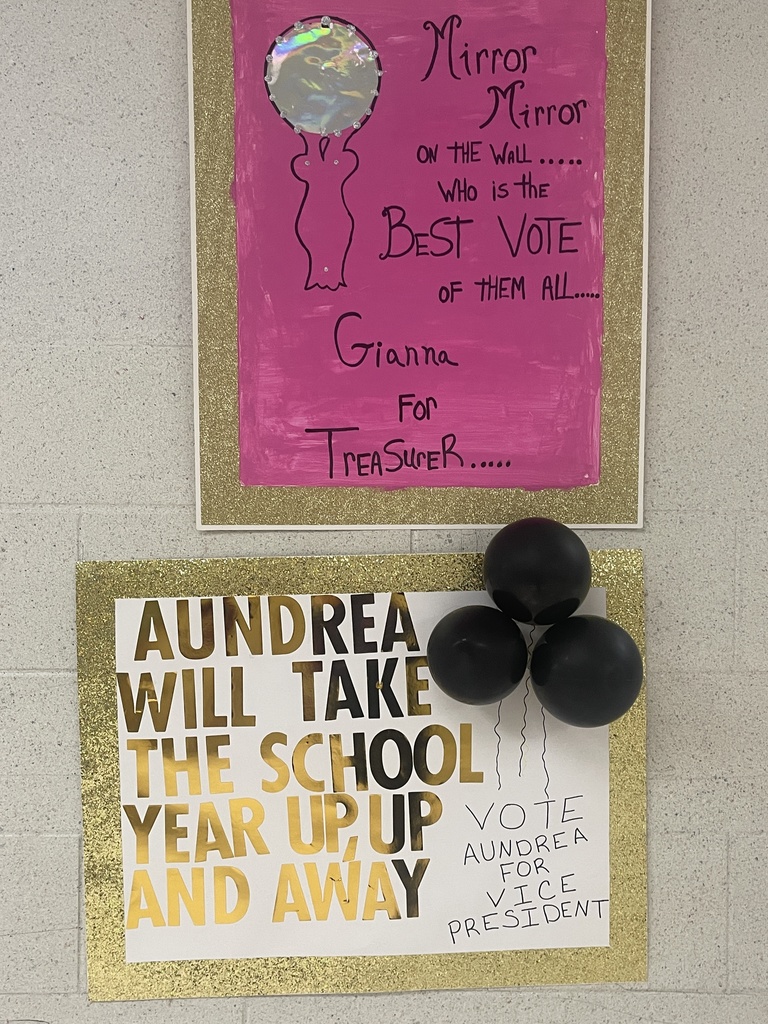 Mirror
Mirror
ON THE WALL.....
WHO is tHE
BEST VOTE
OF tHEM ALL.....
Gianna
FOR
TREASURER.....
AUNDREA
WILL TAKE
THE SCHOOL
YEAR UP, UP
AND AWAY
VOTE
AUNDREA
FOR
VICE
PRESIDENT